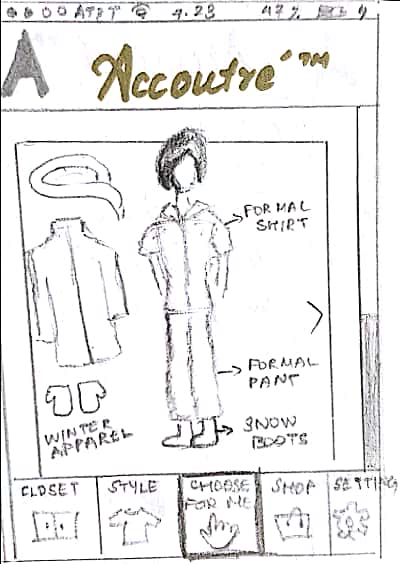 AT&T 4:23 47%
A
Accoutré™
FORMAL
SHIRT
FORMAL
PANT
SNOW
BOOTS
WINTER
APPAREL
CLOSET STYLE CHOOSE SHOP SETTING
FOR ME